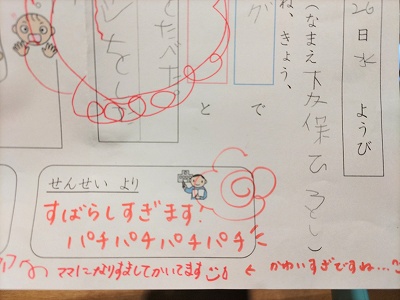 26日水ようび
(なまえ 友保ひろとし)
ね、きょう、
が
で
と
とたべた。
せんせい より
すばらしすぎます!
パチパチパチパチ
ママになりすましてかいてます
← かわいすぎですね…?